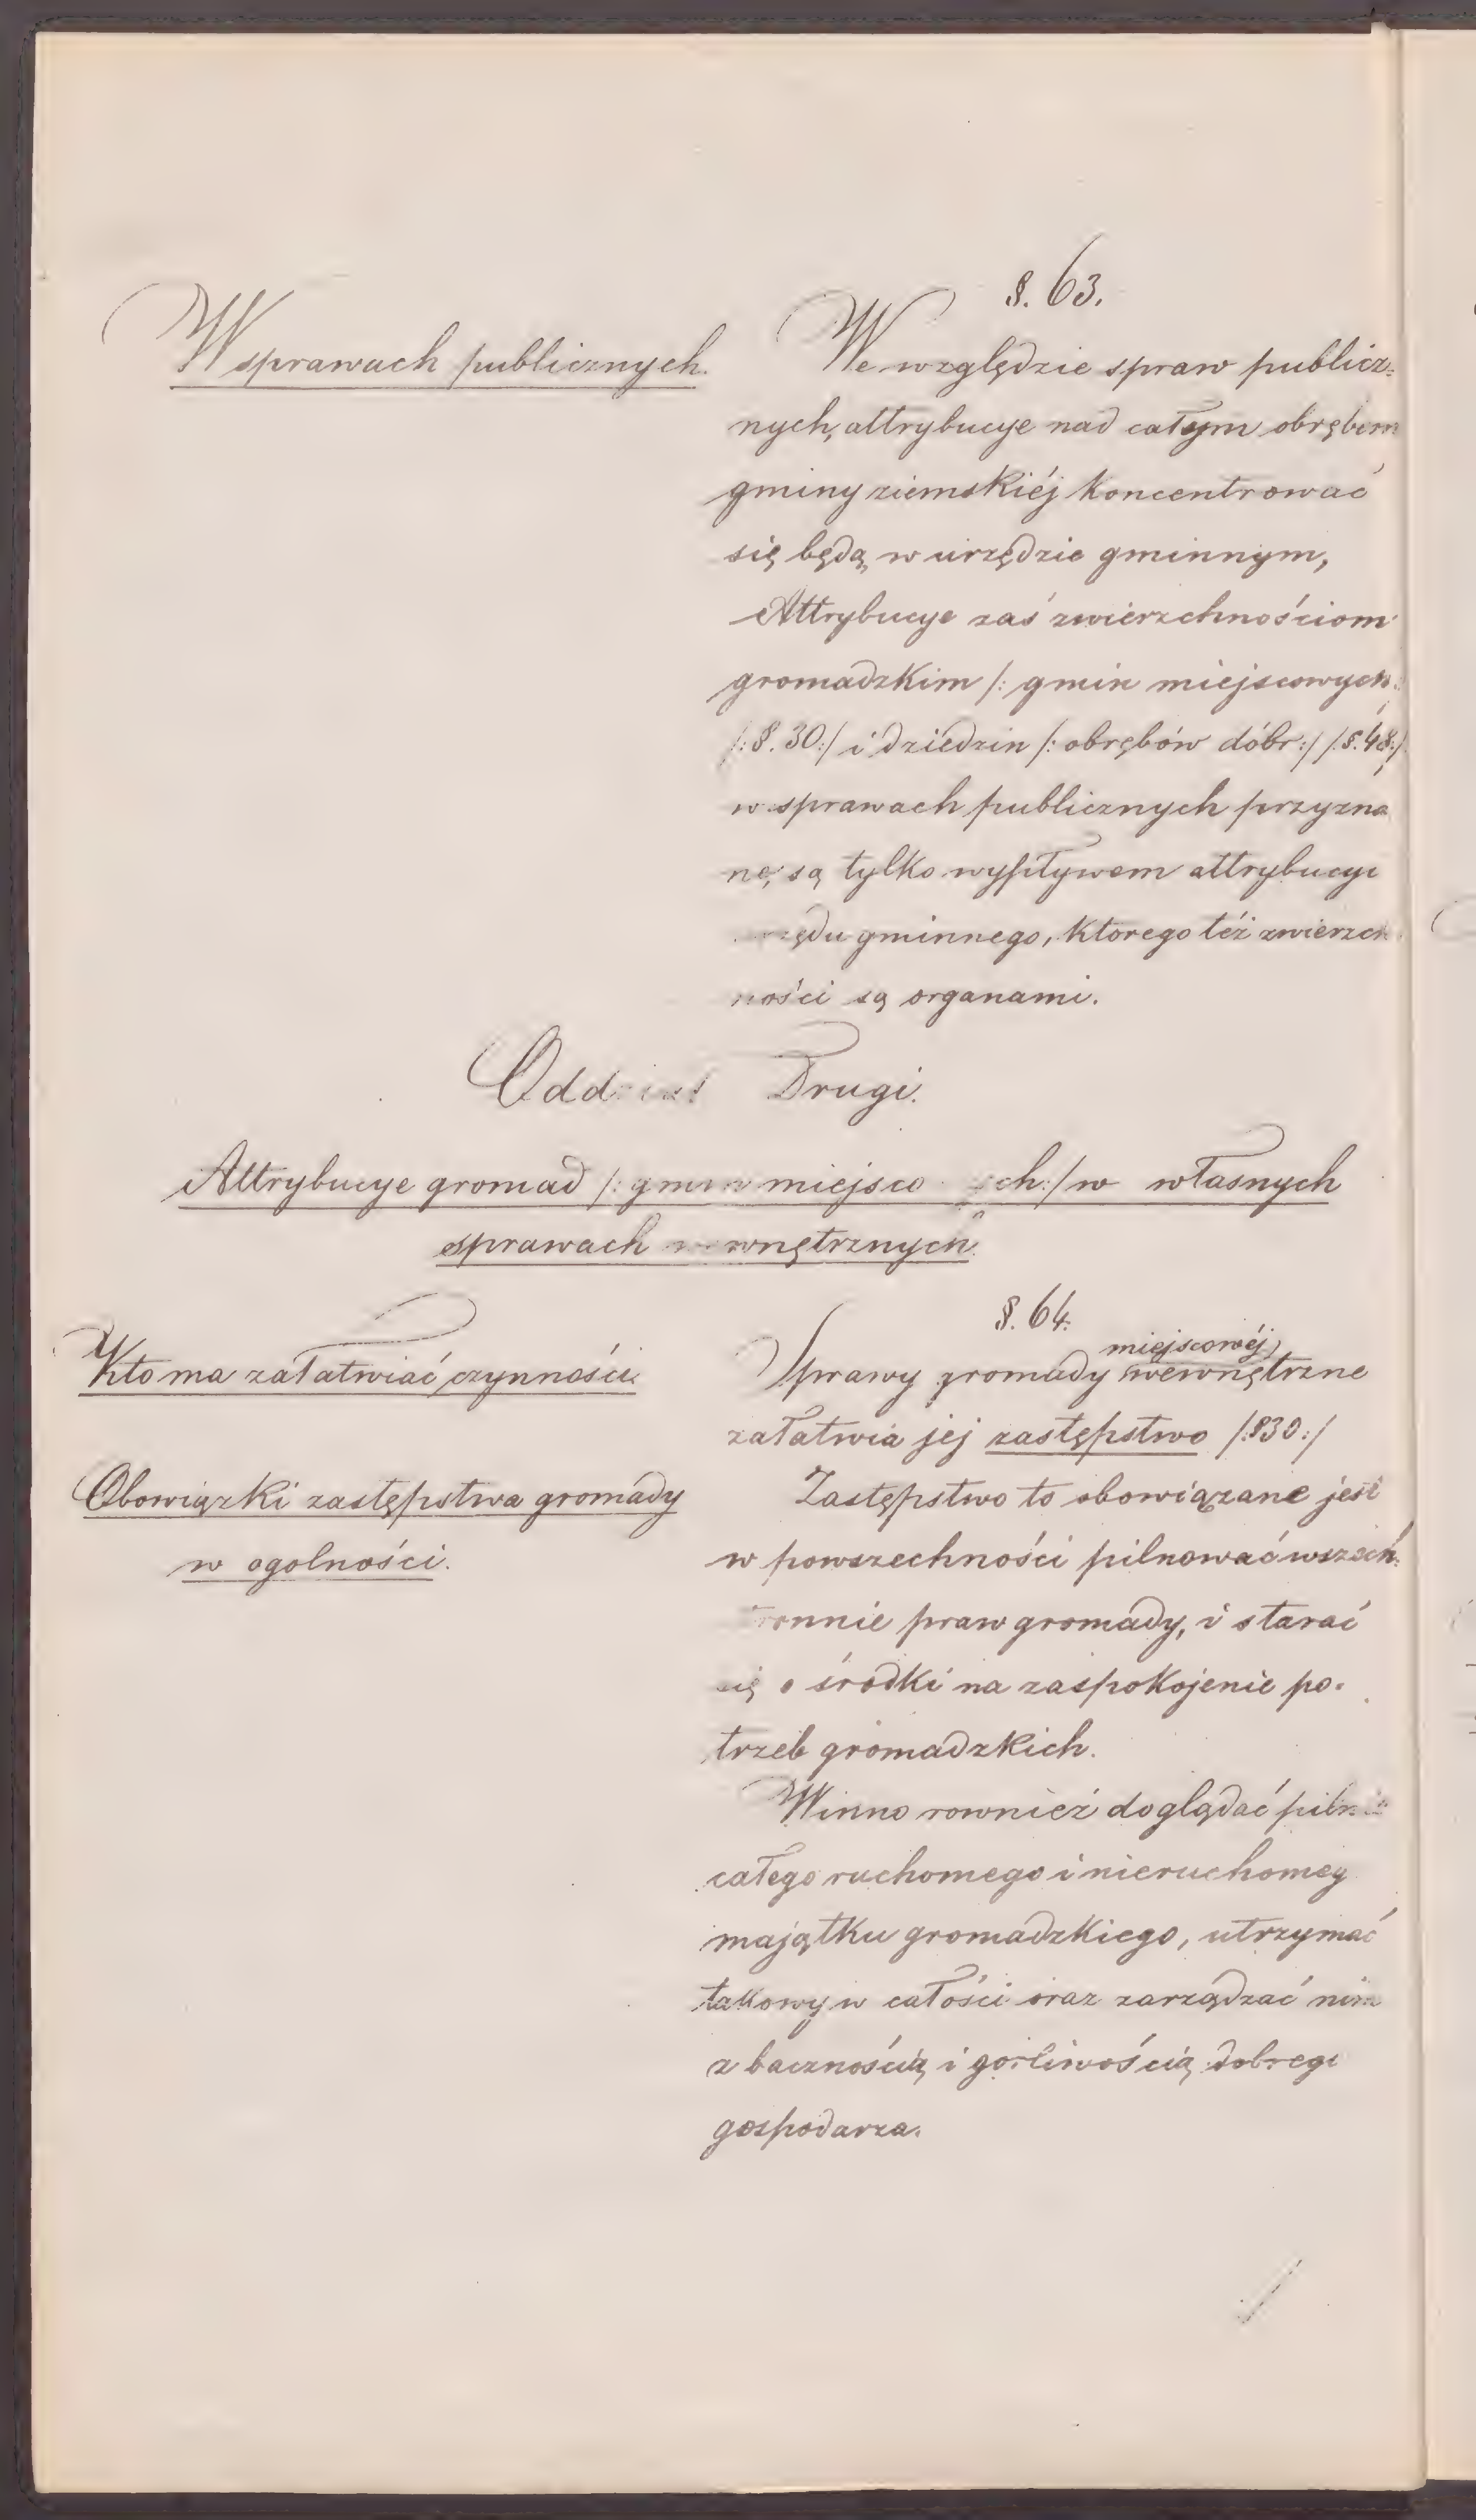 §. 63.
W sprawach publicznych.
We względzie spraw publicz=
nych, attrybucye nad całym obrębem
gminy ziemskiéj koncentrować
się będą w urzędzie gminnym,
Attrybucye zaś zwierzchnościom
gromadzkim /: gmin miejscowych:/
/:§. 30:/ i dziedzin /: obrębów dóbr:/ /:§. 48:/
w sprawach publicznych przyzna
ne, są tylko wypływem attrybucyi
gminnego, ktorego téż zwierzch
ności są organami.
Oddział Drugi.
Attrybucye gromad /: gmin miejscowych:/ w własnych
sprawach wewnętrznych.
§. 64.
Kto ma załatwiać czynności.
miejscowéj
Sprawy gromady wewnętrzne
załatwia jej zastępstwo /:§30:/
Obowiązki zastępstwa gromady
w ogolności.
Zastępstwo to obowiązane jest
w powszechności pilnować wszech=
stronnie praw gromady, i starać
się o środki na zaspokojenie po=
trzeb gromadzkich.
Winno rownież doglądać pilnie
całego ruchomego i nieruchomeg
majątku gromadzkiego, utrzymać
takowy w całości oraz zarządzać nim
z bacznością i gorliwością dobrego
gospodarza.